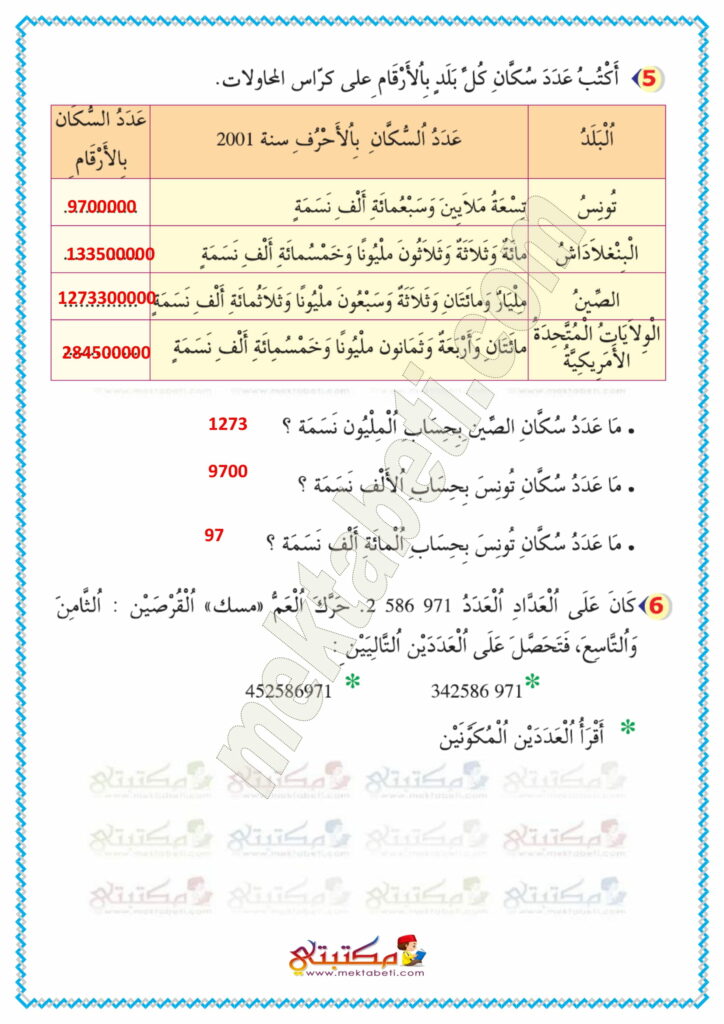 5 أَكْتُبُ عَدَدَ سُكَّانِ كُلِّ بَلَدٍ بِاُلأَرْقَامِ على كرّاس المحاولات.
اُلْبَلَدُ	عَدَدُ اُلسُّكَّانِ بِاُلأَحْرُفِ سنة 2001	عَدَدُ السُّكَّان بِالأَرْقَامِ
تُونِسُ	تِسْعَةُ مَلاَيِينَ وَسَبْعُمائَةِ أَلْفِ نَسَمَةٍ	9700000
الْبِنْغلاَدَاشُ	مائَةٌ وَثَلاَثَةٌ وَثَلاَثُونَ ملْيُونًا وَخَمْسُمائَةِ أَلْفِ نَسَمَةٍ	133500000
الصِّينُ	ملْيَارٌ وَمائَتَانِ وَثَلاَثَةٌ وَسَبْعُونَ ملْيُونًا وَثَلاَثُمائَةِ أَلْفِ نَسَمَةٍ	1273300000
الْوِلاَيَاتُ الْمُتَّحِدَةُ الأَمَرِيكِيَّةُ	مائَتَانِ وَأَرْبَعَةٌ وَثَمَانون ملْيُونًا وَخَمْسُمِائَةِ أَلْفِ نَسَمَةٍ	284500000
• مَا عَدَدُ سُكَّانِ الصِّين بِحِسَابِ اُلْمِلْيُون نَسَمَة ؟ 1273
• مَا عَدَدُ سُكَّانِ تُونِسَ بِحِسَابِ اُلأَلْف نَسَمَة ؟ 9700
• مَا عَدَدُ سُكَّانِ تُونِسَ بِحِسَابِ اُلْمائَةِ أَلْف نَسَمَة ؟ 97
6 كَانَ عَلَى اُلْعَدَّادِ اُلْعَدَدُ 971 586 2. حَرَّكَ اُلْعَمُّ «مسك» اُلْقُرْصَيْن : اُلثَّامِنَ
وَاُلتَّاسِعَ، فَتَحَصَّلَ عَلَى اُلْعَدَدَيْن اُلتَّالِيَيْنِ :
* 342586 971 * 452586971
* أَقْرَأُ اُلْعَدَدَيْن اُلْمُكَوَّنَيْن
mektabeti.com
مكتبتي
www.mektabeti.com